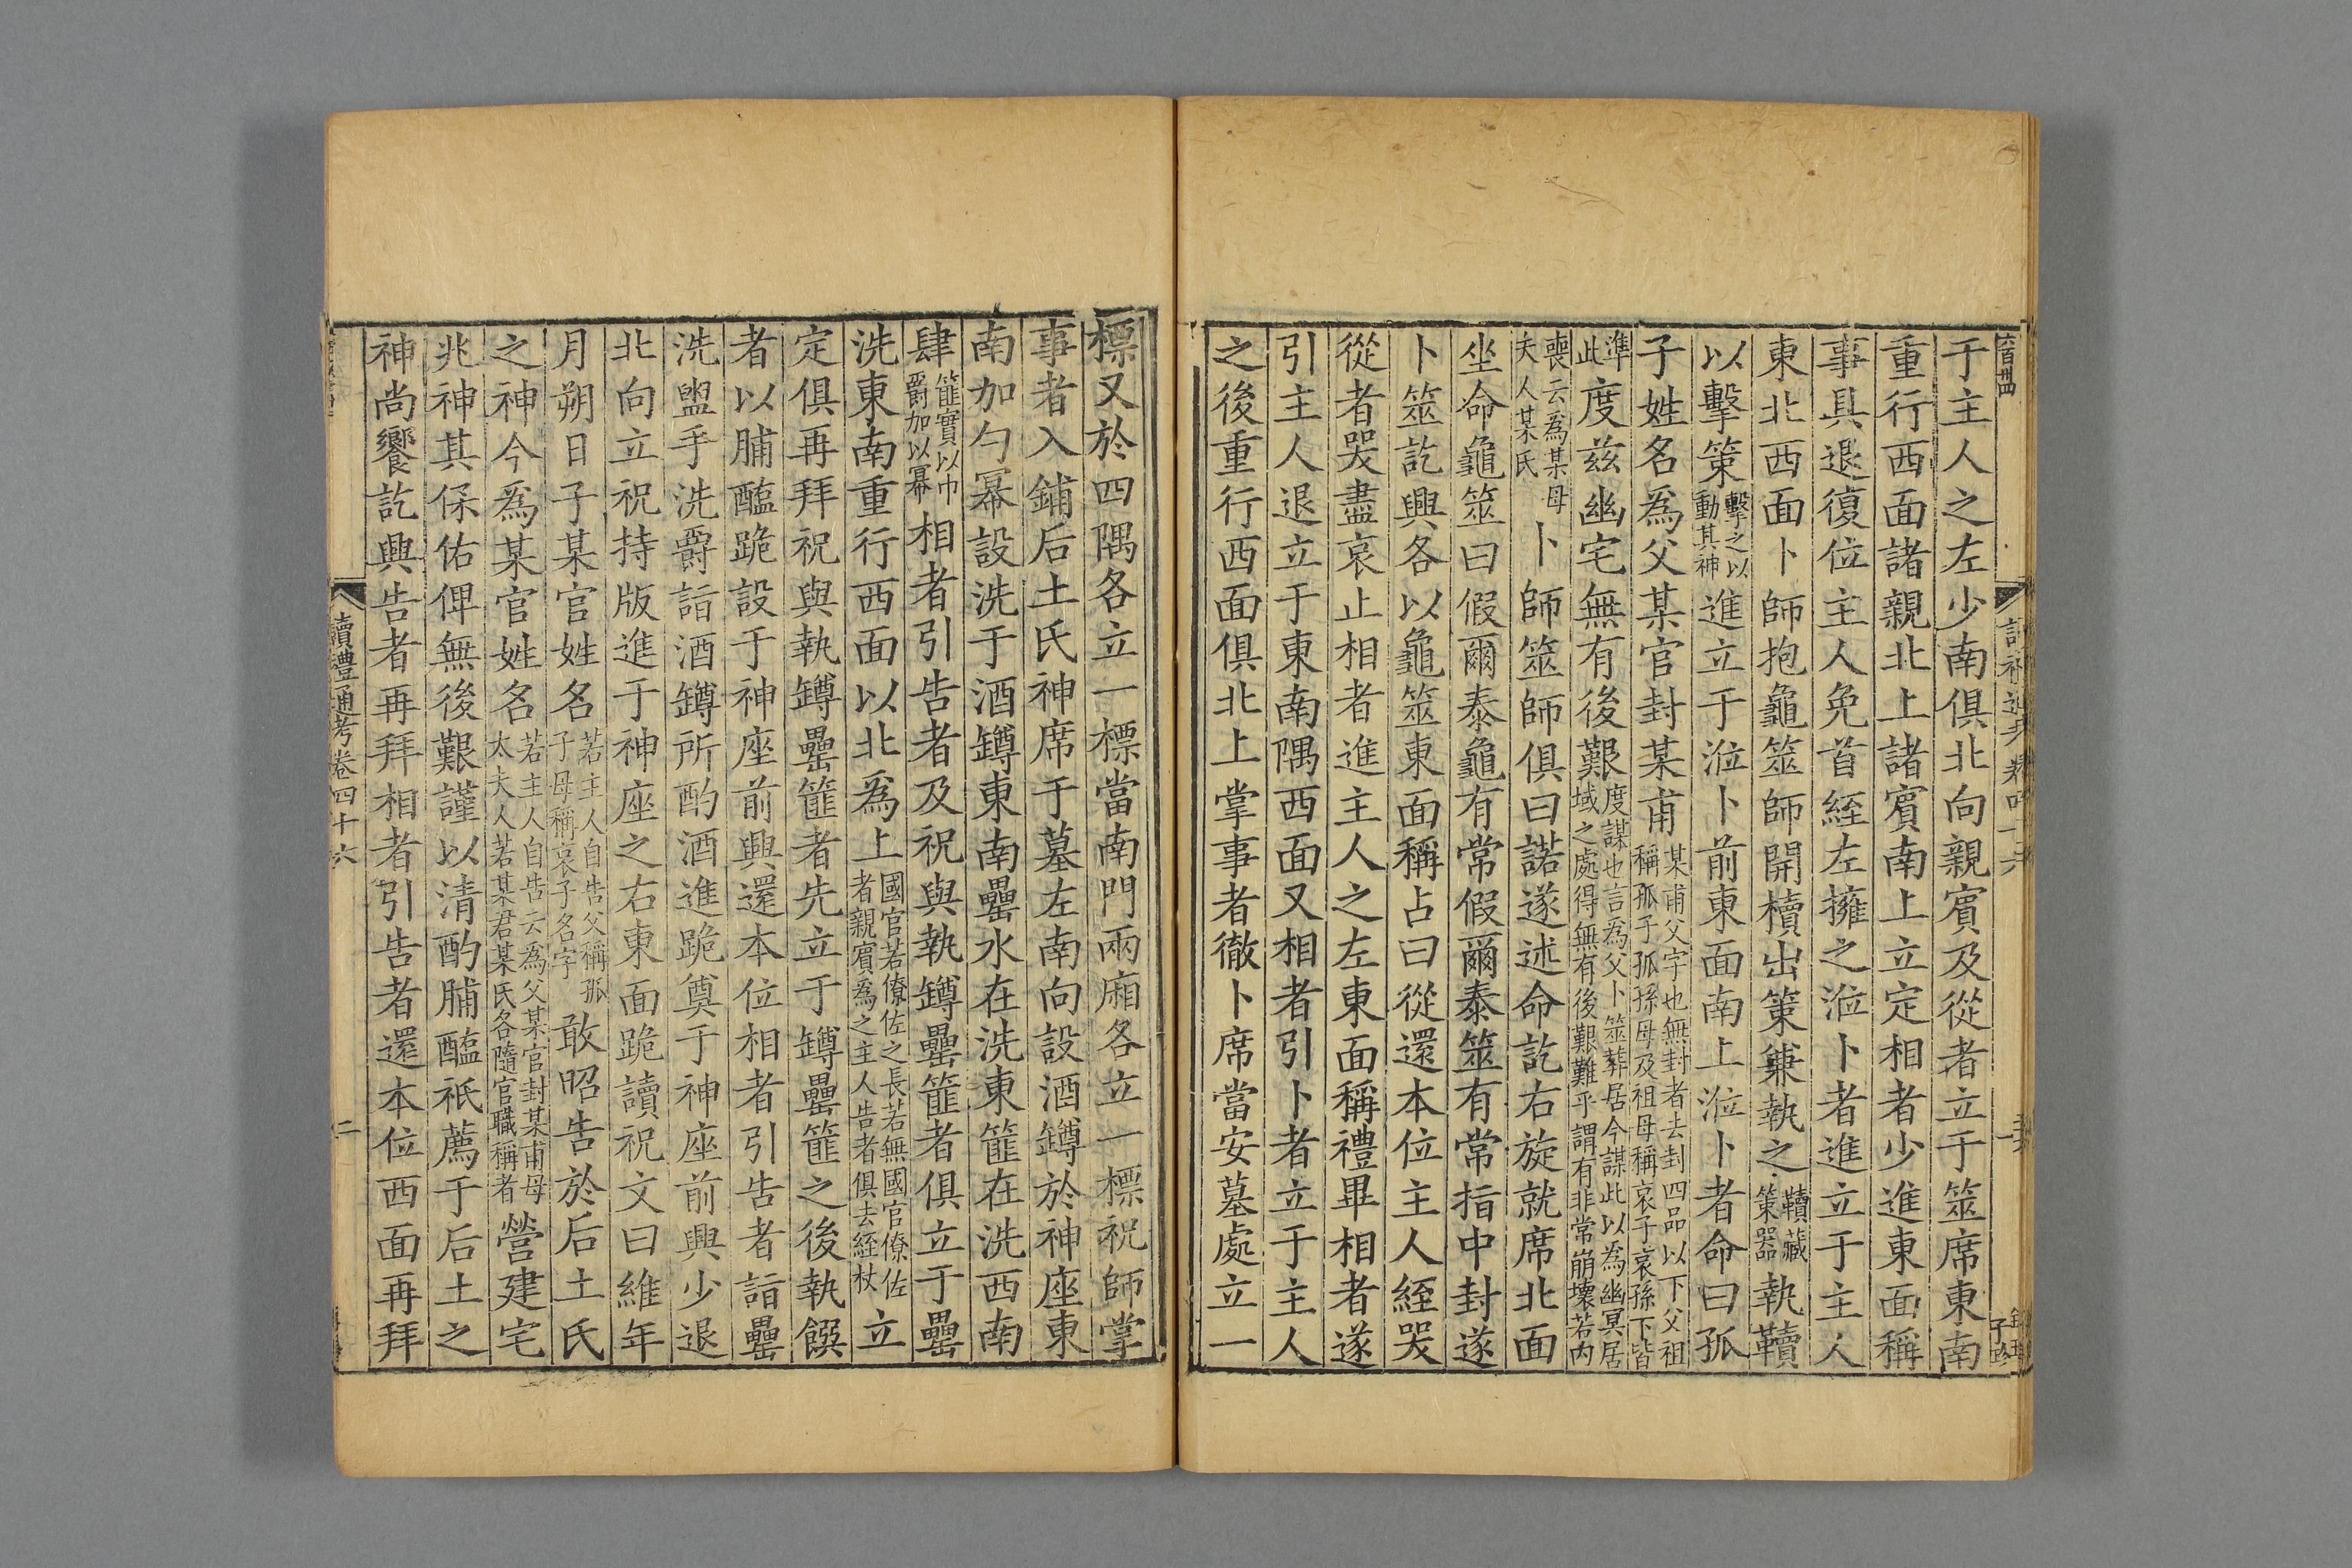 于主人之左少南俱北向親賓及從者立于筮席東南
重行西面諸親北上諸賓南上立定相者少進東面稱
事具退復位主人免首絰左擁之涖卜者進立于主人
東北西面卜師抱龜筮師開櫝出策兼執之櫝藏策器執韇
以擊策擊之以動其神進立于涖卜前東面南上涖卜者命曰孤
子姓名為父某官封某甫某甫父字也無封者去封四品以下父祖稱孤子孤孫母及祖母稱哀子哀孫下皆
準此度茲幽宅無有後艱度謀也言為父卜筮葬居今謀此以為幽冥居域之處得無有後艱難乎謂有非常崩壞若內
喪云為某母夫人某氏卜師筮師俱曰諾遂述命訖右旋就席北面
坐命龜筮曰假爾泰龜有常假爾泰筮有常指中封遂
卜筮訖興各以龜筮東面稱占曰從還本位主人絰哭
從者哭盡哀止相者進主人之左東面稱禮畢相者遂
引主人退立于東南隅西面又相者引卜者立于主人
之後重行西面俱北上掌事者徹卜席當安墓處立一
標又於四隅各立一標當南門兩廂各立一標祝師掌
事者入鋪后土氏神席于墓左南向設酒罇於神座東
南加勺冪設洗于酒罇東南罍水在洗東篚在洗西南
肆篚實以巾爵加以冪相者引告者及祝與執罇罍篚者俱立于罍
洗東南重行西面以北為上國官若僚佐之長若無國官僚佐者親賓為之主人告者俱去絰杖立
定俱再拜祝與執罇罍篚者先立于罇罍篚之後執饌
者以脯醢跪設于神座前興還本位相者引告者詣罍
洗盥手洗爵詣酒罇所酌酒進跪奠于神座前興少退
北向立祝持版進于神座之右東面跪讀祝文曰維年
月朔日子某官姓名若主人自告父稱孤子母稱哀子名字敢昭告於后土氏
之神今為某官姓名若主人自告云為父某官封某甫母太夫人若某君某氏各隨官職稱者營建宅
兆神其保佑俾無後艱謹以清酌脯醢祗薦于后土之
神尚饗訖興告者再拜相者引告者還本位西面再拜
讀禮通考卷四十六
二